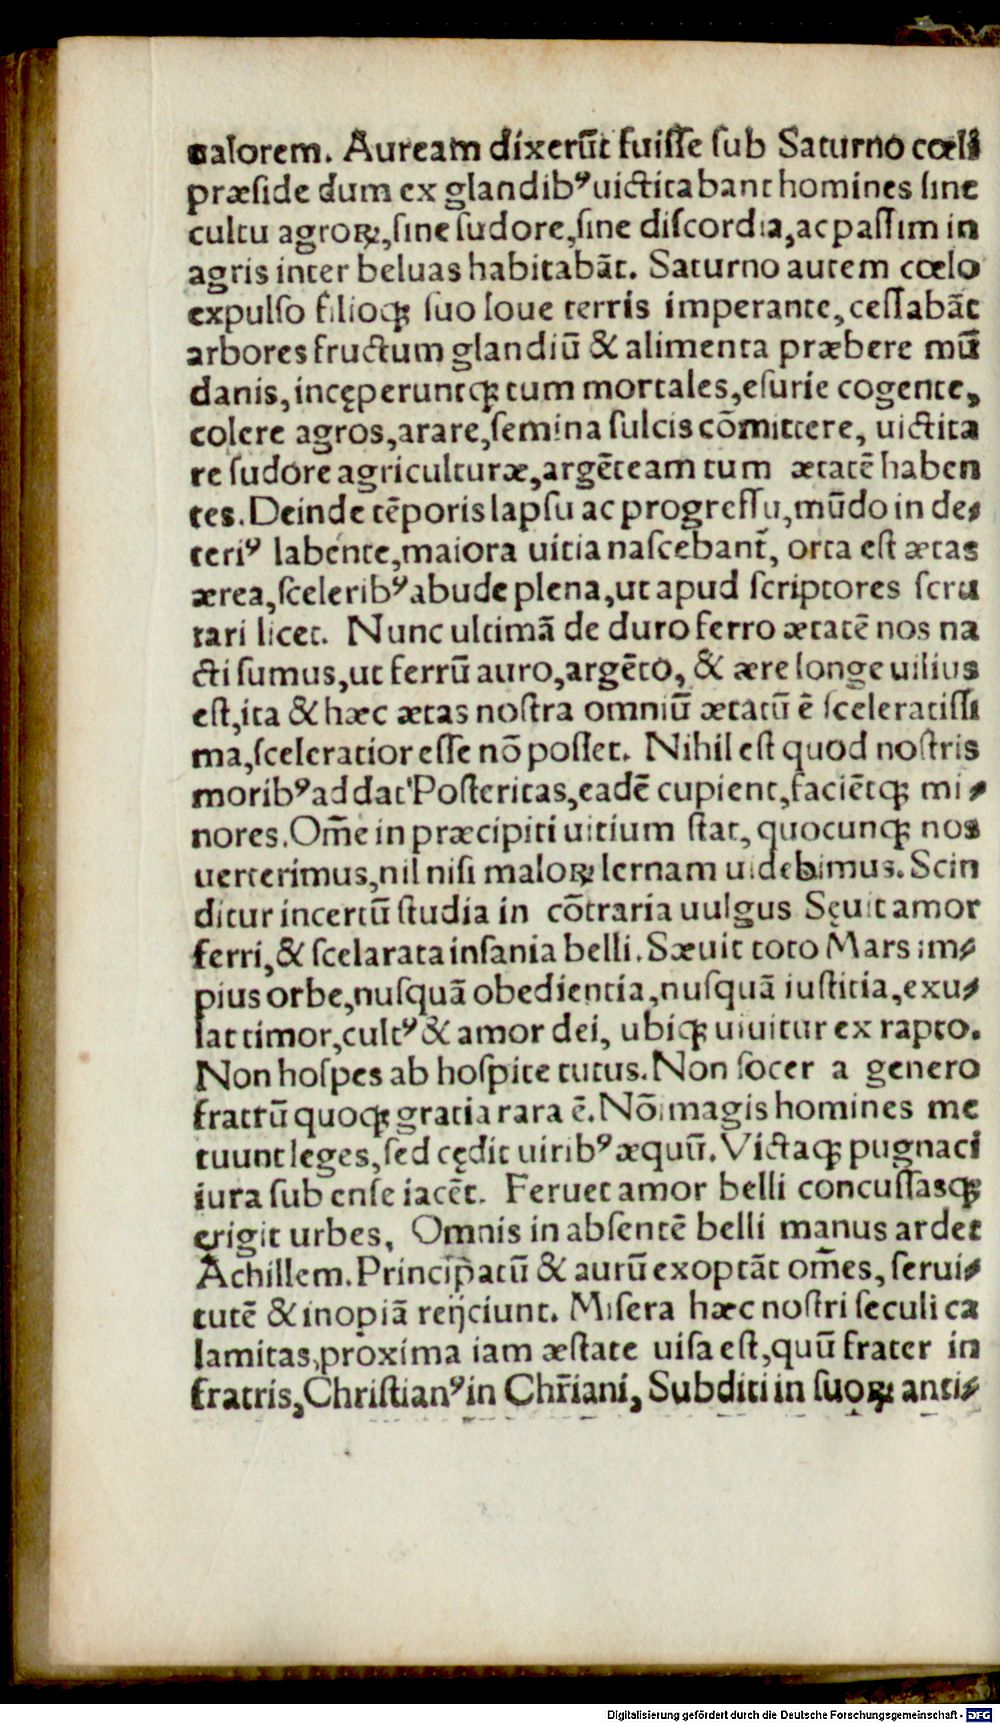 ualorem. Auream dixerũt fuiſſe ſub Saturno cœli
præſide dum ex glandibꝰ uictitabant homines ſine
cultu agroꝝ, ſine ſudore, ſine diſcordia, ac paſſim in
agris inter beluas habitabãt. Saturno autem cœlo
expulſo filioqꝫ ſuo Ioue terris imperante, ceſſabãt
arbores fructum glandiũ & alimenta præbere mũ
danis, incęperuntqꝫ tum mortales, eſurie cogente,
colere agros, arare, ſemina ſulcis cõmittere, uictita
re ſudore agriculturæ, argẽteam tum ætatẽ haben
tes. Deinde tẽporis lapſu ac progreſſu, mũdo in de⸗
teriꝰ labente, maiora uitia naſcebant᷑, orta eſt ætas
ærea, ſceleribꝰ abũde plena, ut apud ſcriptores ſcru
tari licet. Nunc ultimã de duro ferro ætatẽ nos na
cti ſumus, ut ferrũ auro, argẽto, & ære longe uilius
eſt, ita & hæc ætas noſtra omniũ ætatũ ẽ ſceleratiſſi
ma, ſceleratior eſſe nõ poſſet. Nihil eſt quod noſtris
moribꝰ addat Poſteritas, eadẽ cupient, faciẽtqꝫ mi⸗
nores. Om̃e in præcipiti uitium ſtat, quocunqꝫ nos
uerterimus, nil niſi maloꝝ lernam uidebimus. Scin
ditur incertũ ſtudia in cõtraria uulgus Sęuit amor
ferri, & ſcelarata inſania belli. Sæuit toto Mars im⸗
pius orbe, nuſquã obedientia, nuſquã iuſticia, exu⸗
lat timor, cultꝰ & amor dei, ubiqꝫ uiuitur ex rapto.
Non hoſpes ab hoſpite tutus. Non ſocer a genero
fratrũ quoqꝫ gratia rara ẽ. Nõ magis homines me
tuunt leges, ſed cędit uiribꝰ æquũ. Victaqꝫ pugnaci
iura ſub enſe iacẽt. Feruet amor belli concuſſasqꝫ
erigit urbes, Omnis in abſentẽ belli manus ardet
Achillem. Principatũ & aurũ exoptãt om̃es, ſerui⸗
tutẽ & inopiã reijciunt. Miſera hæc noſtri ſeculi ca
lamitas, proxima iam æſtate uiſa eſt, quũ frater in
fratris, Chriſtianꝰ in Chr̃iani, Subditi in ſuoꝝ anti⸗
Digitalisierung gefördert durch die Deutsche Forschungsgemeinschaft - DFG